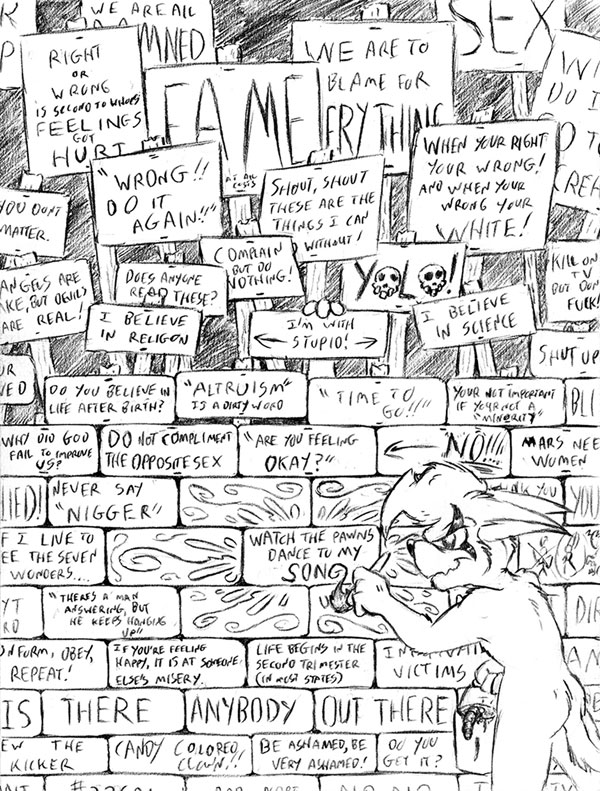 WE ARE ALL
DAMNED
SEX
RIGHT
OR
WRONG
IS SECOND TO WHO'S
FEELINGS
GOT
HURT
FAME
AT ALL
COSTS
WE ARE TO
BLAME FOR
EVERYTHING
DO I
"WRONG!!
DO IT
AGAIN!!"
SHOUT, SHOUT
THESE ARE THE
THINGS I CAN
DO WITHOUT!
WHEN YOUR RIGHT
YOUR WRONG!
AND WHEN YOUR
WRONG YOUR
WHITE!
YOU DON'T
MATTER.
COMPLAIN
BUT DO
NOTHING!
YOLO!
KILL ON
TV
BUT DON'T
FUCK!
ANGELS ARE
FAKE, BUT DEVILS
ARE REAL!
DOES ANYONE
READ THESE?
I BELIEVE
IN RELIGON
I'M WITH
STUPID!
I BELIEVE
IN SCIENCE
SHUT UP
DO YOU BELIEVE IN
LIFE AFTER BIRTH?
"ALTRUISM"
IS A DIRTY WORD
"TIME TO
GO!!!"
YOUR NOT IMPORTANT
IF YOUR NOT A
"MINORITY"
WHY DID GOD
FAIL TO IMPROVE
US?
DO NOT COMPLIMENT
THE OPPOSITE SEX
"ARE YOU FEELING
OKAY?"
NO!!!
MARS NEE
WOMEN
IED!
NEVER SAY
"NIGGER"
YOU
YOU
IF I LIVE TO
SEE THE SEVEN
WONDERS...
WATCH THE PAWNS
DANCE TO MY
SONG
"THERES A MAN
ANSWERING, BUT
HE KEEPS HANGING
UP"
DI
CONFORM, OBEY,
REPEAT!
IF YOU'RE FEELING
HAPPY, IT IS AT SOMEONE
ELSE'S MISERY.
LIFE BEGINS IN THE
SECOND TRIMESTER
(IN MOST STATES)
VICTIMS
IS THERE ANYBODY OUT THERE
THE
KICKER
CANDY COLORED
CLOWN!!
BE ASHAMED, BE
VERY ASHAMED!
DO YOU
GET IT?